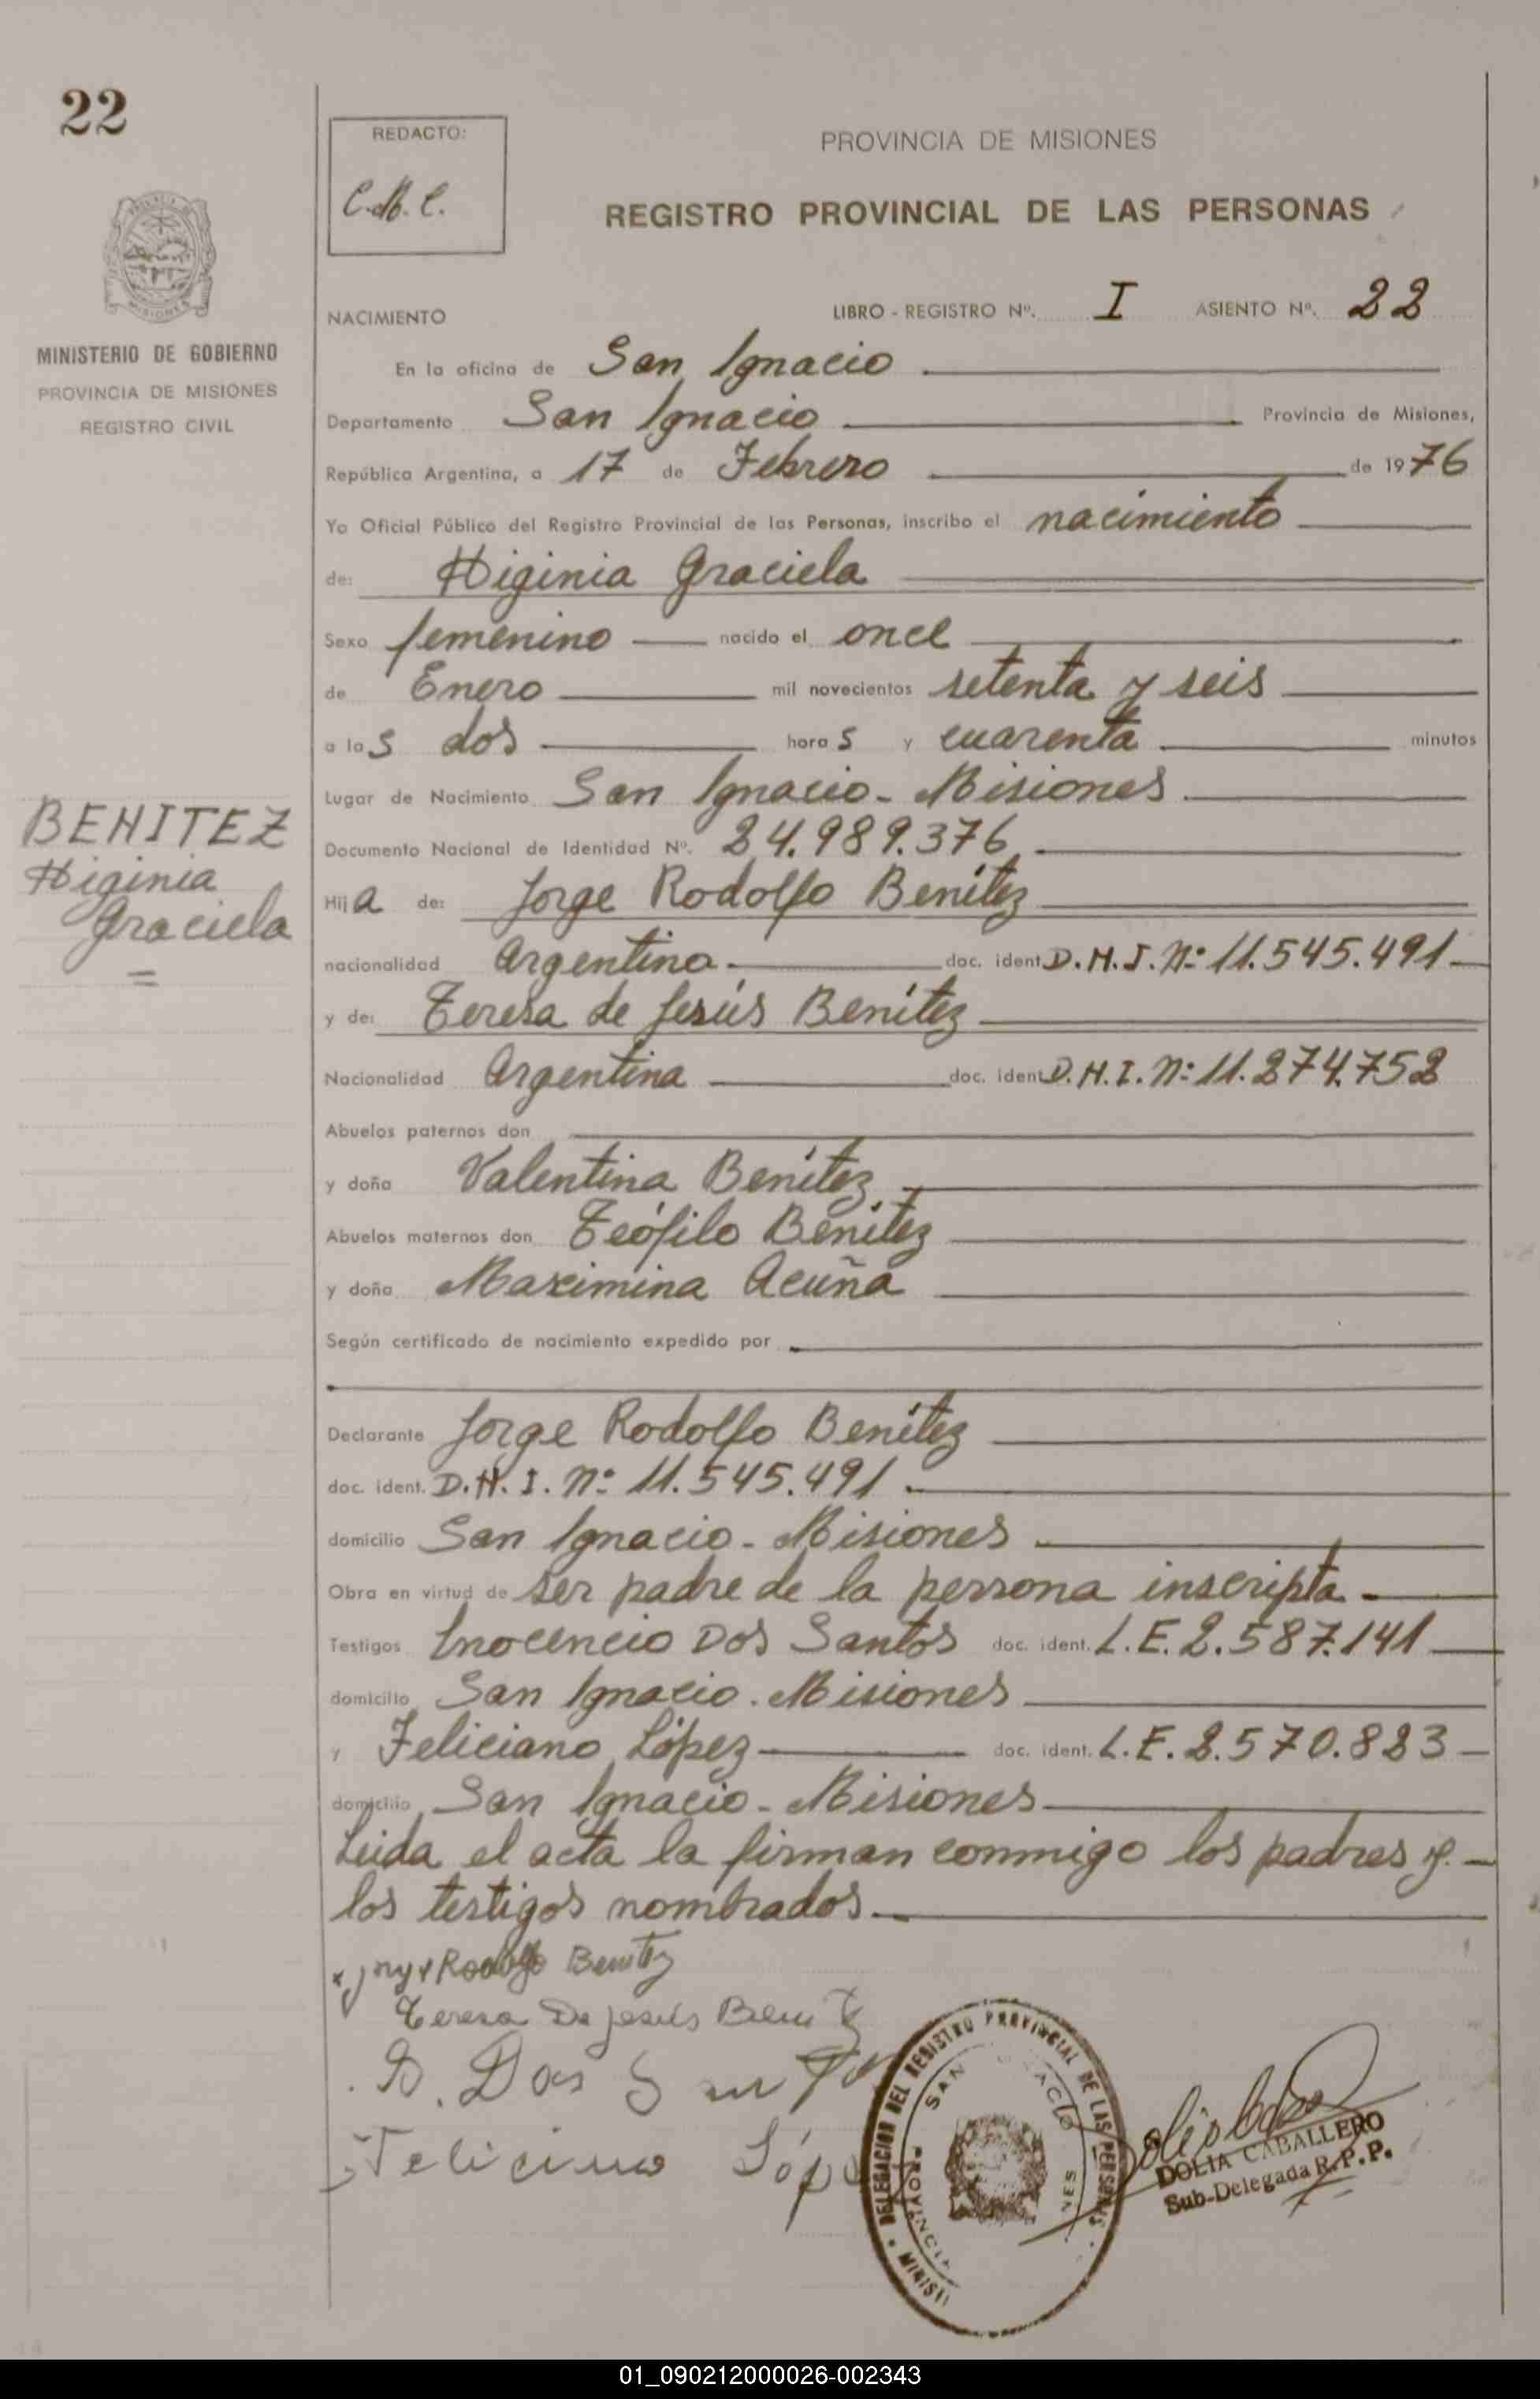 22
REDACTO:
C.M.C.
PROVINCIA DE MISIONES
REGISTRO PROVINCIAL DE LAS PERSONAS
MISIONES
MINISTERIO DE GOBIERNO
PROVINCIA DE MISIONES
REGISTRO CIVIL
NACIMIENTO LIBRO - REGISTRO Nº. I ASIENTO Nº. 22
En la oficina de San Ignacio
Departamento San Ignacio Provincia de Misiones,
República Argentina, a 17 de Febrero de 1976
Yo Oficial Público del Registro Provincial de las Personas, inscribo el nacimiento
de: Higinia Graciela
Sexo femenino nacido el once
de Enero mil novecientos setenta y seis
a las dos horas y cuarenta minutos
Lugar de Nacimiento San Ignacio - Misiones
Documento Nacional de Identidad Nº. 24.989.376
BENITEZ
Higinia
Graciela
Hija de: Jorge Rodolfo Benítez
nacionalidad Argentino doc. ident. D.N.I. Nº 11.545.491
y de: Teresa de Jesús Benítez
Nacionalidad Argentina doc. ident. D.N.I. Nº 11.274.752
Abuelos paternos don
y doña Valentina Benítez
Abuelos maternos don Teófilo Benítez
y doña Maximina Acuña
Según certificado de nacimiento expedido por
Declarante Jorge Rodolfo Benítez
doc. ident. D.N.I. Nº 11.545.491
domicilio San Ignacio - Misiones
Obra en virtud de ser padre de la persona inscripta
Testigos Inocencio Dos Santos doc. ident. L.E. 2.587.141
domicilio San Ignacio. Misiones
y Feliciano López doc. ident. L.E. 2.570.823
domicilio San Ignacio - Misiones
Leida el acta la firman conmigo los padres y
los testigos nombrados
x Jorge Rodolfo Benitez
Teresa De Jesús Benitez
Dos Santos
Feliciano López
DELEGACION DEL REGISTRO PROVINCIAL DE LAS PERSONAS
SAN
PROVINCIA
DOLIA CABALLERO
Sub-Delegada R.P.P.
01_090212000026-002343